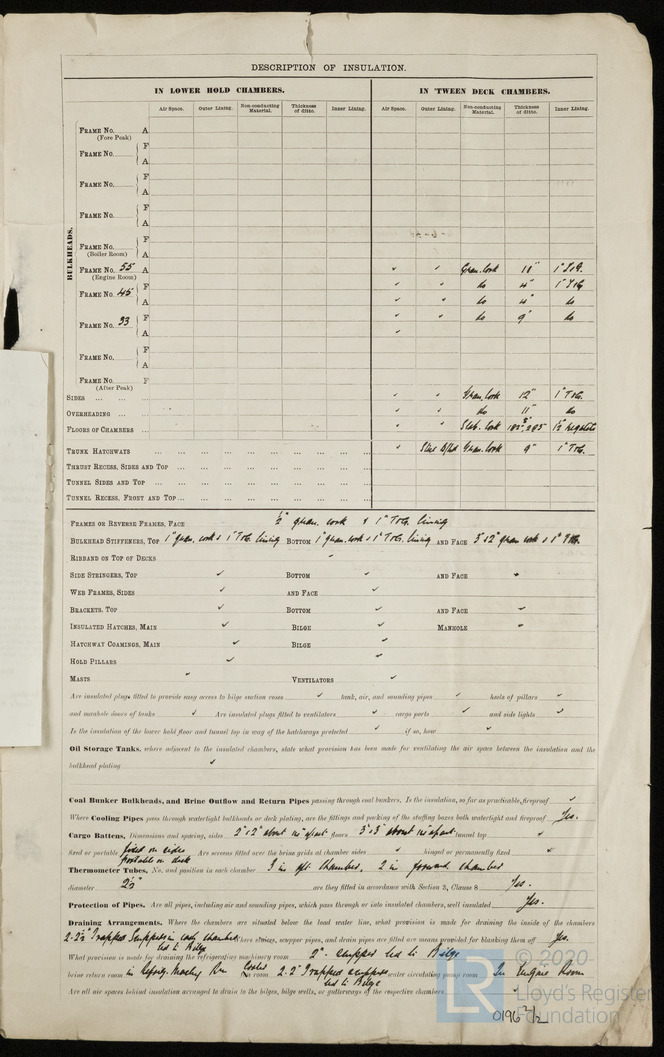 DESCRIPTION OF INSULATION.
IN LOWER HOLD CHAMBERS. IN 'TWEEN DECK CHAMBERS.
Air Space. Outer Lining. Non-conducting Material. Thickness of ditto. Inner Lining. Air Space. Outer Lining. Non-conducting Material. Thickness of ditto. Inner Lining.
BULKHEADS.
FRAME No. A
(Fore Peak)
FRAME No. F
A
FRAME No. F
A
FRAME No. F
A
FRAME No. F
(Boiler Room)
FRAME No. 55 A Gran. Cork 11" 1" T&G.
(Engine Room)
FRAME No. 45 F do 4" 1" T&G
A do 4" do
FRAME No. 33 F do 9" do
A
FRAME No. F
A
FRAME No. F
(After Peak)
SIDES ... ... ... Gran. Cork 12" 1" T&G.
OVERHEADING ... ... do 11" do
FLOORS OF CHAMBERS ... Slab. Cork
TRUNK HATCHWAYS ... Gran. Cork 9" 1" T&G.
THRUST RECESS, SIDES AND TOP ...
TUNNEL SIDES AND TOP ...
TUNNEL RECESS, FRONT AND TOP ...
FRAMES OR REVERSE FRAMES, FACE ½" gran. cork & 1" T&G. lining
BULKHEAD STIFFENERS, TOP 1" gran. cork & 1" T&G. lining BOTTOM 1" gran. cork & 1" T&G. lining AND FACE
RIBBAND ON TOP OF DECKS
SIDE STRINGERS, TOP BOTTOM AND FACE
WEB FRAMES, SIDES AND FACE
BRACKETS, TOP BOTTOM AND FACE
INSULATED HATCHES, MAIN BILGE MANHOLE
HATCHWAY COAMINGS, MAIN BILGE
HOLD PILLARS
MASTS VENTILATORS
Are insulated plugs fitted to provide easy access to bilge suction roses tank, air, and sounding pipes heels of pillars
and manhole doors of tanks Are insulated plugs fitted to ventilators cargo ports and side lights
Is the insulation of the lower hold floor and tunnel top in way of the hatchways protected if so, how
Oil Storage Tanks, where adjacent to the insulated chambers, state what provision has been made for ventilating the air space between the insulation and the
bulkhead plating
Coal Bunker Bulkheads, and Brine Outflow and Return Pipes passing through coal bunkers. Is the insulation, so far as practicable, fireproof
Where Cooling Pipes pass through watertight bulkheads or deck plating, are the fittings and packing of the stuffing boxes both watertight and fireproof Yes.
Cargo Battens, Dimensions and spacing, sides 2"x2" about apart floors 3"x3" about apart tunnel top
fixed or portable fixed on sides portable on deck Are screens fitted over the brine grids at chamber sides hinged or permanently fixed
Thermometer Tubes, No. and position in each chamber 3 in aft chamber, 2 in forward chamber
diameter 2½" are they fitted in accordance with Section 3, Clause 8 Yes.
Protection of Pipes. Are all pipes, including air and sounding pipes, which pass through or into insulated chambers, well insulated Yes.
Draining Arrangements. Where the chambers are situated below the load water line, what provision is made for draining the inside of the chambers
2-2½" Trapped Scuppers in each chamber led to Bilge Where sluices, scupper pipes, and drain pipes are fitted are means provided for blanking them off Yes.
What provision is made for draining the refrigerating machinery room 2". scupper led to Bilge
brine return room in Refrig. Machy Rm Cooler room 2. 2" Trapped scuppers led to Bilge water circulating pump room In Engine Room
Are all air spaces behind insulation arranged to drain to the bilges, bilge wells, or gutterways of the respective chambers
© 2020
LR Lloyd's Register
Foundation
0196 2/2